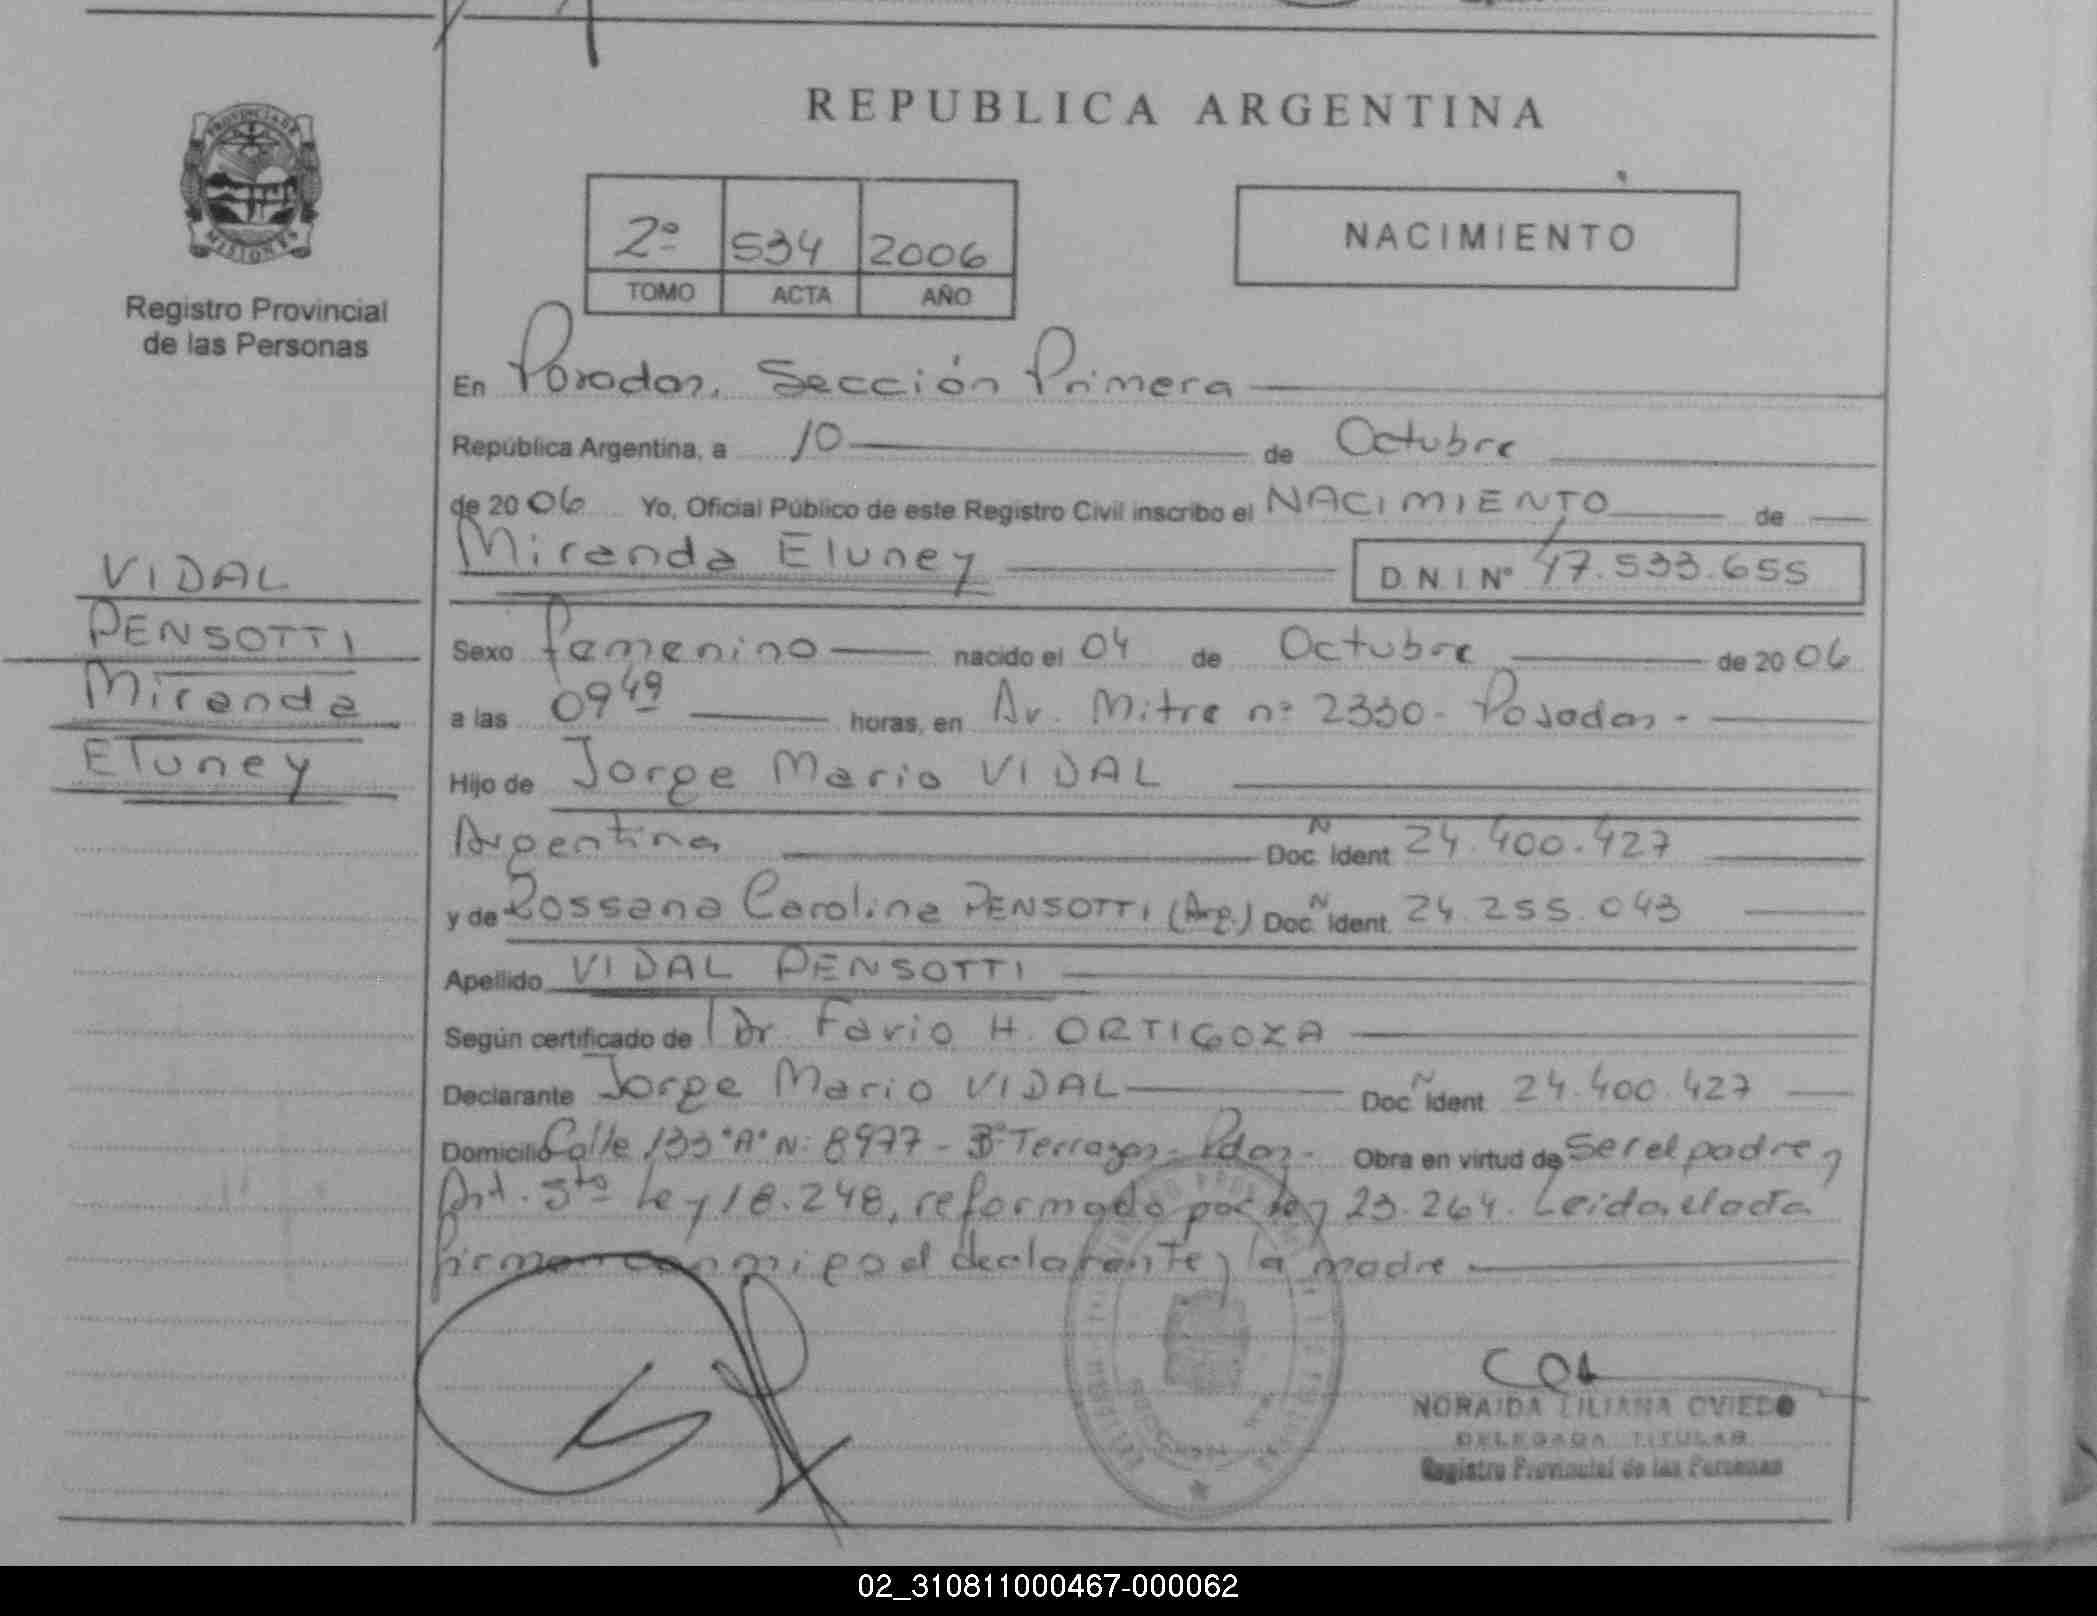 REPUBLICA ARGENTINA
PROVINCIA DE
MISIONES
Registro Provincial
de las Personas
2º 534 2006
TOMO ACTA AÑO
NACIMIENTO
En Posadas, Sección Primera
República Argentina, a 10 de Octubre
de 2006 Yo, Oficial Público de este Registro Civil inscribo el NACIMIENTO de
Miranda Eluney D.N.I. Nº 47.533.655
VIDAL
PENSOTTI
Miranda
Eluney
Sexo femenino nacido el 04 de Octubre de 2006
a las 09 49 horas, en Av. Mitre nº 2330 - Posadas -
Hijo de Jorge Mario VIDAL
Argentina Doc. Ident N 24.400.427
y de Rossana Carolina PENSOTTI (Arg.) Doc. Ident. N 24.255.043
Apellido VIDAL PENSOTTI
Según certificado de Dr. Favio H. ORTIGOZA
Declarante Jorge Mario VIDAL Doc. Ident N 24.400.427
Domicilio Calle 133 "A" Nº 8977 - Bº Terrazas - Pdas - Obra en virtud de ser el padre y
Art. 5to Ley 18.248, reformado por ley 23.264. Leida el acta
firman conmigo el declarante y la madre
NORAIDA LILIANA OVIEDO
DELEGADA TITULAR
Registro Provincial de las Personas
02_310811000467-000062